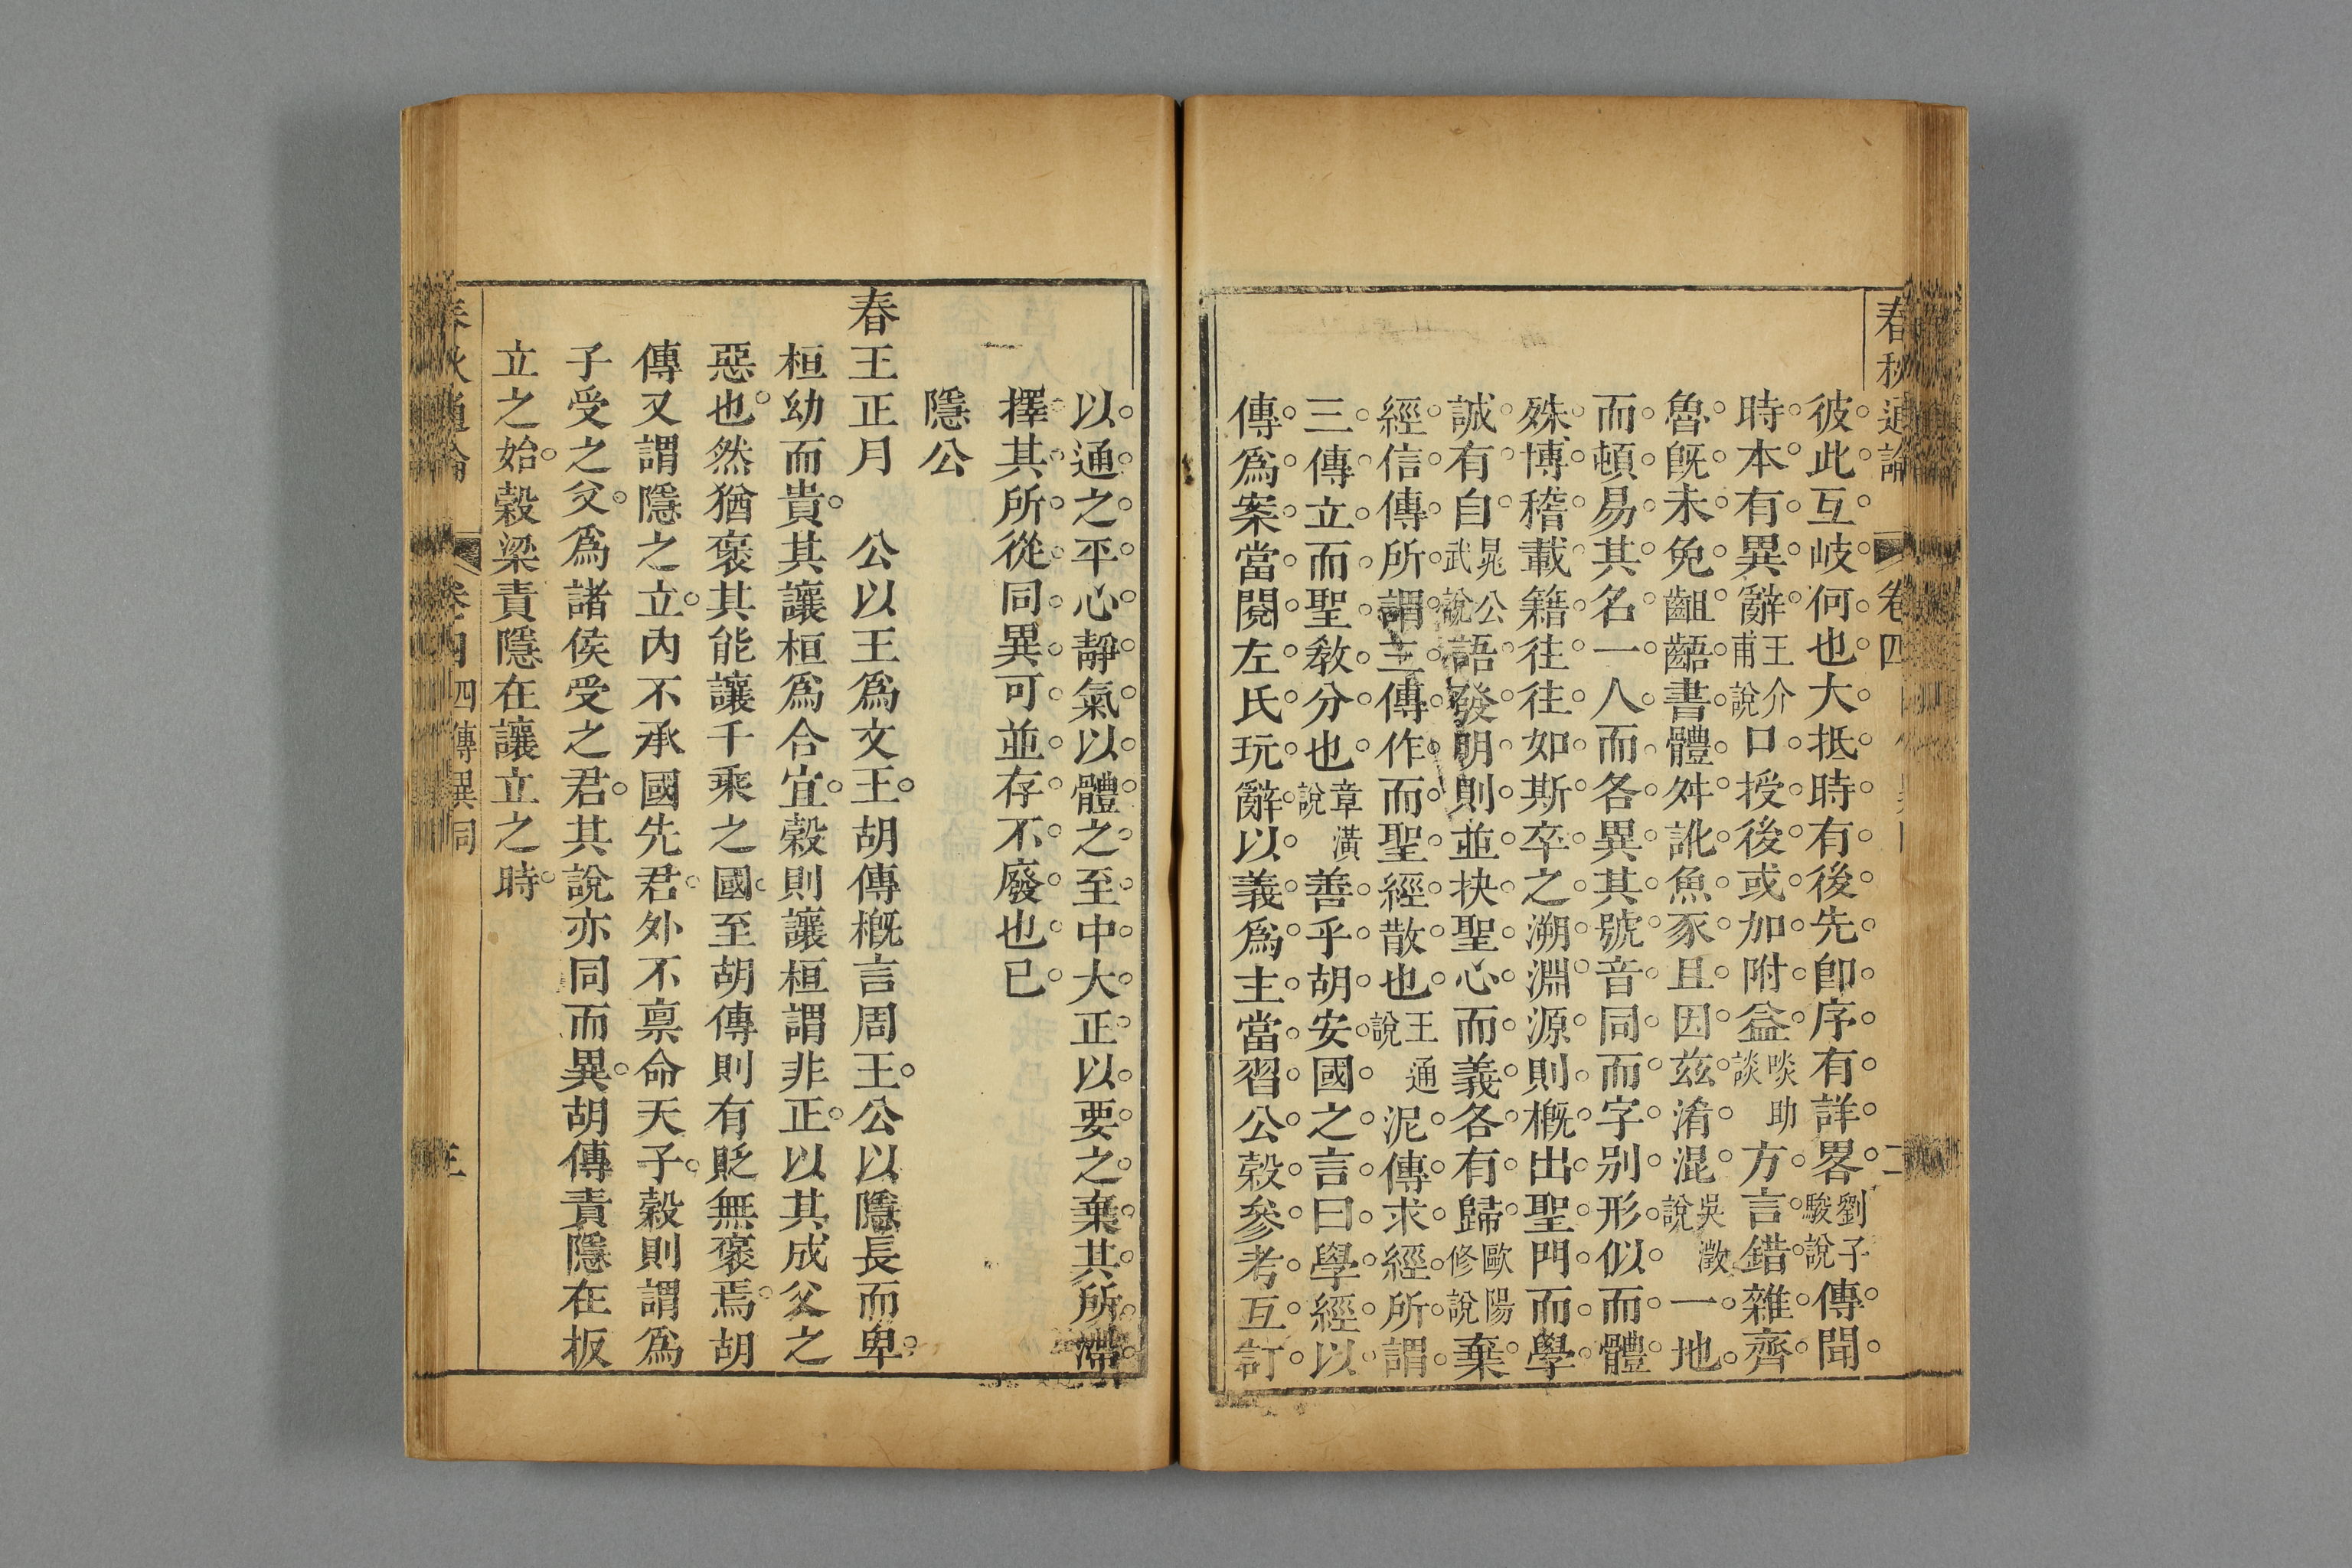 春秋通論 卷四 二
彼此互岐何也大抵時有後先卽序有詳畧劉子駿說傳聞
時本有異辭王介甫說口授後或加附益啖助談方言錯雜齊
魯旣未免齟齬書體舛訛魚豕且因兹淆混吳澂說一地
而頓易其名一人而各異其號音同而字别形似而體
殊博稽載籍往往如斯卒之溯淵源則槪出聖門而學
誠有自晁公武說語發明則並抉聖心而義各有歸歐陽修說棄
經信傳所謂三傳作而聖經散也王通說泥傳求經所謂
三傳立而聖教分也章潢說善乎胡安國之言曰學經以
傳爲案當閱左氏玩辭以義爲主當習公穀參考互訂
以通之平心靜氣以體之至中大正以要之棄其所滯
擇其所從同異可並存不廢也已
隱公
春王正月 公以王爲文王胡傳槪言周王公以隱長而卑
桓幼而貴其讓桓爲合宜穀則讓桓謂非正以其成父之
惡也然猶褒其能讓千乘之國至胡傳則有貶無褒焉胡
傳又謂隱之立内不承國先君外不禀命天子穀則謂爲
子受之父爲諸侯受之君其說亦同而異胡傳責隱在扳
立之始穀梁責隱在讓立之時
春秋通論 卷四 四傳異同 三